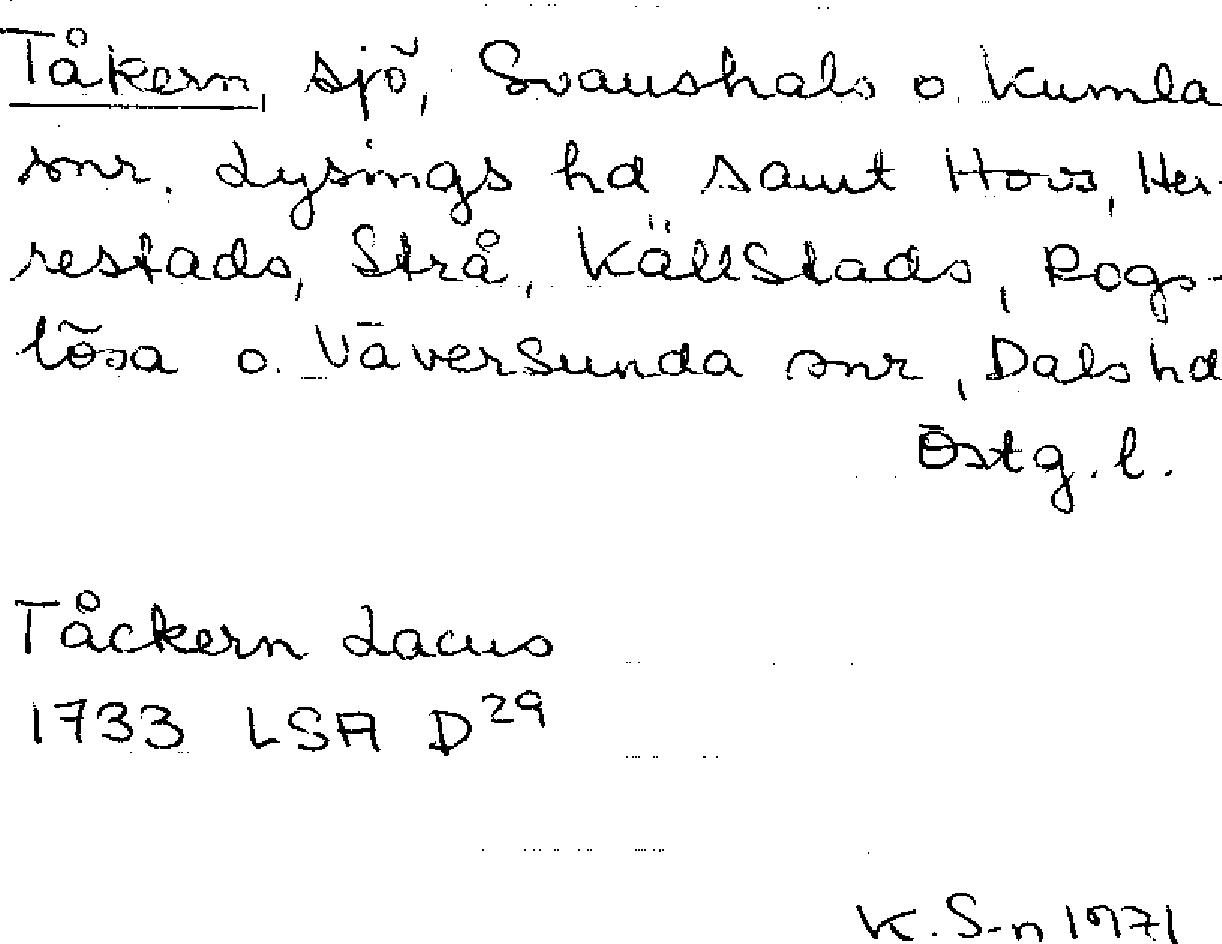 Tåkern, sjö, Svanshals o. Kumla
snr. Lysings hd samt Hovs, Her-
restads, Strå, Källstads, Rogs-
lösa o. Väversunda snr, Dals hd
Östg. l.
Tåckern Lacus
1733 LSA D29
K. S-n 1971